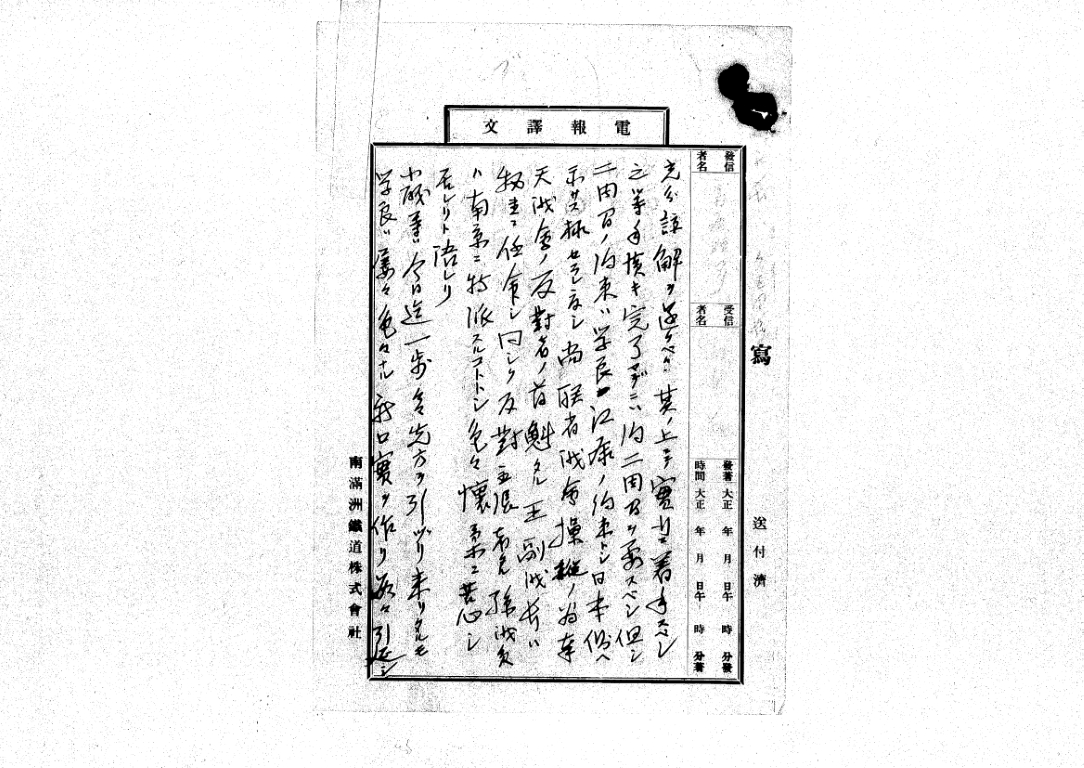 電報譯文
寫
送付濟
發信者名
受信者名
發著 大正 年 月 日午 時 分發
時間 大正 年 月 日午 時 分著
充分諒解ヲ遂クベク其ノ上ニテ實行ニ着手スベシ
之等手積キ完了マデニハ約二周間ヲ要スベシ但シ
二周間ノ約束ハ学良江藤ノ約束トシ日本側ヘ
示サヌ様セラレ度シ尚联省議會操縦ノ為奉
天議會ノ反對者ノ首魁タル王副議長ハ
ニ任命シ同シク反對主張者タル孫議員
ハ南京ニ特派スルコトトシ色々懐柔ニ苦心シ
居レリト語レリ
小磯等ハ今日迄一歩々々先方ヲ引ヅリ来リタルモ
学良ハ屡々色々ナル新口實ヲ作リ段々引延シ
南滿洲鐵道株式會社